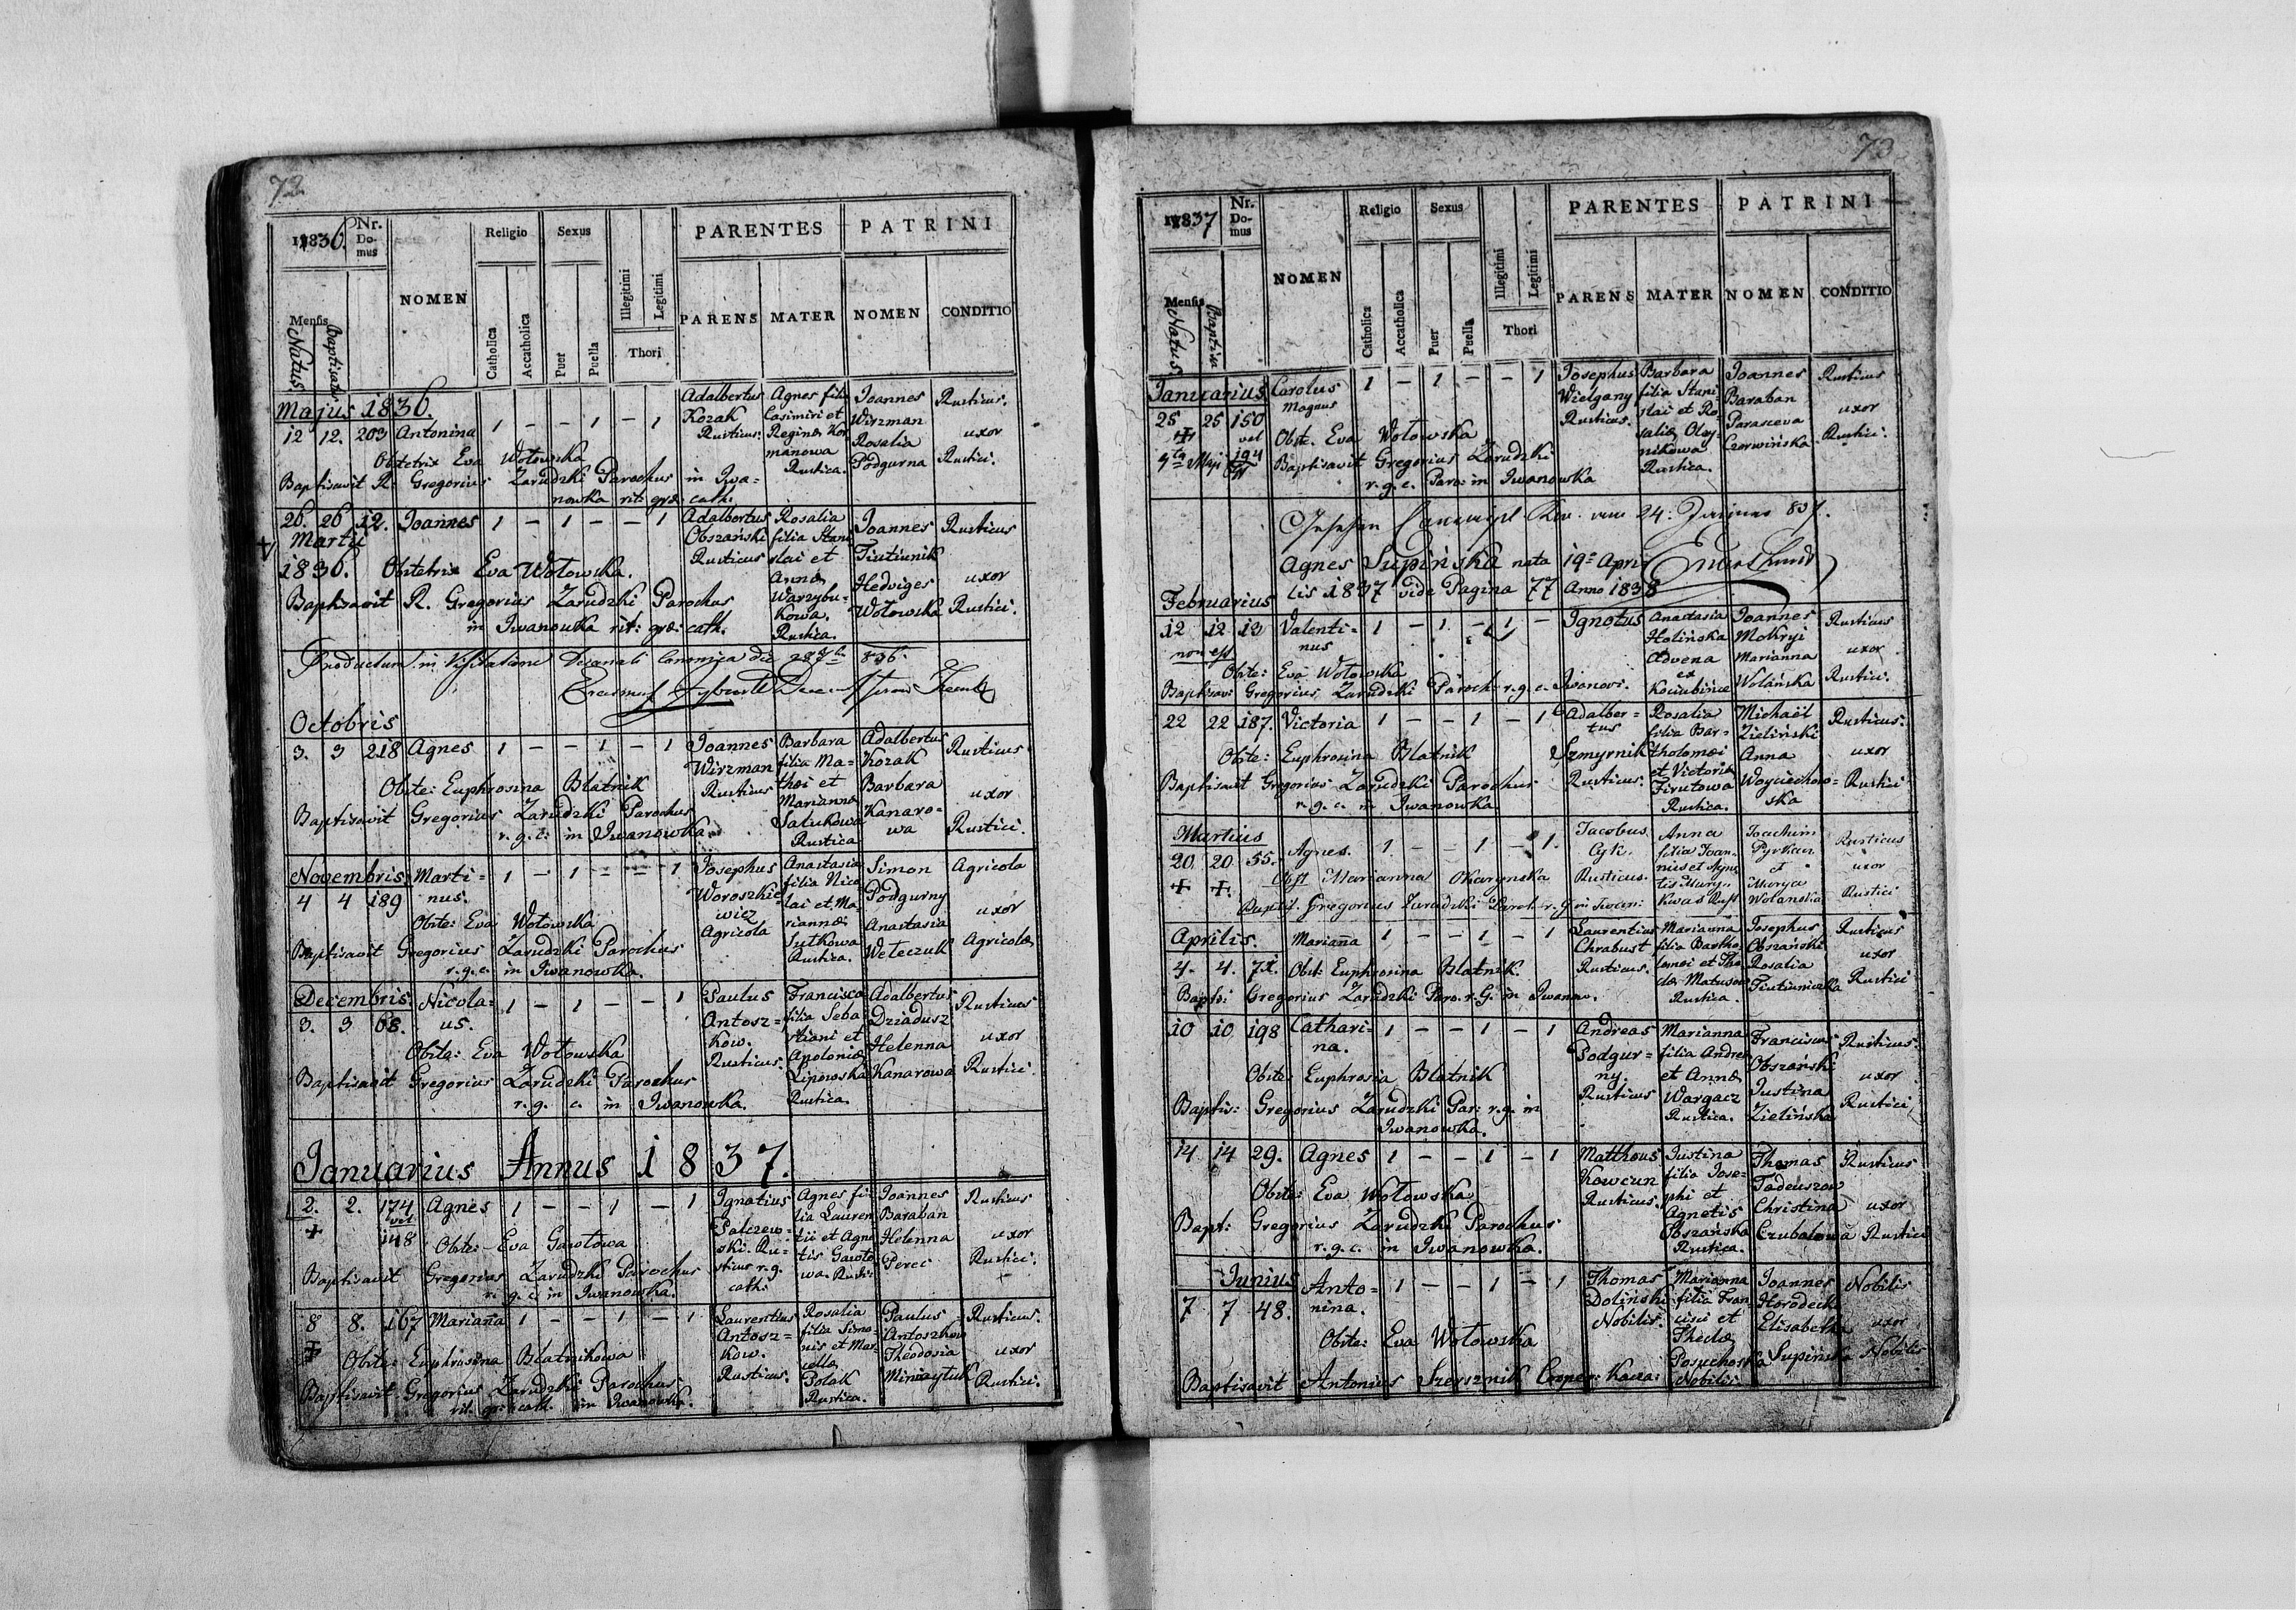 72
1836. Nr. Domus NOMEN Religio Sexus Illegitimi Legitimi PARENTES PATRINI
Mensis Natus Baptisatus Catholica Accatholica Puer Puella Thori PARENS MATER NOMEN CONDITIO
Majus 1836.
12 12. 203 Antonina 1 – – 1 – 1
Adalbertus Kozak Rusticus.
Agnes filia Casimiri et Reginæ Kormanowa Rustica.
Joannes Wirzman Rosalia Podgurna
Rusticus. uxor Rustici.
Obstetrix Eva Wołowska
Baptisavit R. Gregorius Zarudzki Parochus in Jwa=
nowka rit: græ: cath:
26. 26 12. Joannes 1 – 1 – – 1
Martii
1836.
Adalbertus Obszański Rusticus
Rosalia filia Stanislai et Annæ Warzybukowa. Rustica.
Joannes Tiutiunik Hedviges Wołowska
Rusticus uxor Rustici.
Obstetrix Eva Wołowska.
Baptisavit R. Gregorius Zarudzki Parochus
in Jwanowka rit: græ: cath.
Productum in Visitatione Decanali Canonica die 28 836.
Octobris
3. 3 218 Agnes 1 – – 1 – 1
Joannes Wirzman Rusticus
Barbara filia Mathæi et Mariannæ Sałukowa Rustica
Adalbertus Kozak Barbara Kanarowa
Rusticus uxor Rustici.
Obste: Euphrosina Blatnik
Baptisavit Gregorius Zarudzki Parochus
r. g. c. in Jwanowka.
Novembris. Marti=
4 4 189 nus. 1 – 1 – – 1
Josephus Woroszkiewicz Agricola
Anastasia filia Nicolai et Mariannæ Sutkowa Rustica.
Simon Podgurny Anastasia Weteczuk
Agricola uxor Agricolæ
Obste: Eva Wołowska
Baptisavit Gregorius Zarudzki Parochus
r. g. c. in Jwanowka.
Decembris. Nicola=
3. 3 68. us. 1 – 1 – – 1
Paulus Antosz=kow. Rusticus.
Francisca filia Sebastiani et Apoloniæ Lipowska Rustica.
Adalbertus Dziadusz Helenna Kanarowa
Rusticus uxor Rustici.
Obste: Eva Wołowska
Baptisavit Gregorius Zarudzki Parochus
r. g. c. in Jwanowka.
Januarius Annus 1837.
2. 2. 174 vel 148 Agnes 1 – – 1 – 1
Ignatius Salczewski. Rusticus r. g. cath:
Agnes filia Laurentii et Agnetis Gawłowa. Rusti:
Joannes Baraban Helenna Perec
Rusticus uxor Rustici.
Obste: Eva Gawłowa
Baptisavit Gregorius Zarudzki Parochus
r. g. c. in Jwanowka.
8 8. 167 Marianna 1 – – 1 – 1
Laurentius Antosz=kow. Rusticus.
Rosalia filia Simonis et Marcellæ Polak Rustica.
Paulus Antoszkow Theodosia Miniaytuk
Rusticus. uxor Rustici.
Obste: Euphrosina Blatnikowa
Baptisavit Gregorius Zarudzki Parochus
rit. gr. cath. in Jwanowka.
73
1837 Nr. Domus NOMEN Religio Sexus Illegitimi Legitimi PARENTES PATRINI
Mensis Natus Baptisatus Catholica Accatholica Puer Puella Thori PARENS MATER NOMEN CONDITIO
Januarius Carolus Magnus 1 – 1 – – 1
25 25 150 vel 194
Josephus Wielgany Rusticus.
Barbara filia Stanislai et Rosaliæ Oleynikowa Rustica.
Joannes Baraban Parasceva Czerwińska
Rusticus uxor Rustici.
Obste. Eva Wołowska
Baptisavit Gregorius Zarudzki
r. g. c. Paro: in Jwanowka
24: 837.
Agnes Supińska nata 19a Apri
lis 1837 vide Pagina 77 Anno 1838
Februarius
12 12 13 Valenti=nus 1 – 1 – 1 –
non est
Ignotus
Anastasia Holińska Advena ex Kociubińce
Joannes Mokryi Marianna Wolańska
Rusticus uxor Rustici.
Obste: Eva Wołowska
Baptisavi Gregorius Zarudzki Paroch r. g. c. Jwanow.
22 22 187. Victoria 1 – – 1 – 1
Adalber=tus Szmyrnik Rusticus.
Rosalia filia Bartholomæi et Victoriæ Firutowa Rustica.
Michaël Zieliński Anna Woyciechow=ska
Rusticus. uxor Rustici
Obste: Euphrosina Blatnik
Baptisavit Gregorius Zarudzki Parochus
r. g. c. in Jwanowka
Martius
20 20 55. Agnes. 1 – – 1 – 1.
Jacobus Cyk. Rusticus.
Anna filia Joannis et Agnetis
Joachim Pyrkan et Marya Wolanska
Rusticus uxor Rustici
Obst Marianna Okarynska
Baptis. Gregorius Zarudzki Paroch r. g. in Jwan:
Aprilis.
4. 4. 71. Marianna 1 – – 1 – 1
Laurentius Chrabust Rusticus.
Marianna filia Bartholomei et Theclæ Rustica.
Josephus Obszański Rosalia Tiutiunicka
Rusticus uxor Rustici
Obst: Euphrosina Blatnik.
Bapti: Gregorius Zarudzki Paro. r. G. in Jwanow.
10 10 198 Cathari=na. 1 – – 1 – 1
Andreas Podgur=ny. Rusticus
Marianna filia Andreæ et Annæ Wargacz Rustica.
Franciscus Obszański Justina Zielińska
Rusticus. uxor Rustici
Obste: Euphrosia Blatnik
Baptis: Gregorius Zarudzki Par: r. g. in
Jwanowka.
14 14 29. Agnes 1 – – 1 – 1
Matthous Kowcun Rusticus.
Justina filia Josephi et Agnetis Obszańska Rustica.
Thomas Tadeuszow Christina Czubatowa
Rusticus uxor Rustici
Obste: Eva Wołowska
Bapt: Gregorius Zarudzki Parochus
r. g. c. in Jwanowka.
Junius
7 7 48. Anto=nina. 1 – – 1 – 1
Thomas Dolinski Nobilis.
Marianna filia Francisci et Theclæ Posuchowska Nobilis
Joannes Horodecki Elisabetha Supińska
Nobilis uxor Nobilis
Obste: Eva Wołowska
Baptisavit Antonius Szersznik Cooper: Kacza: